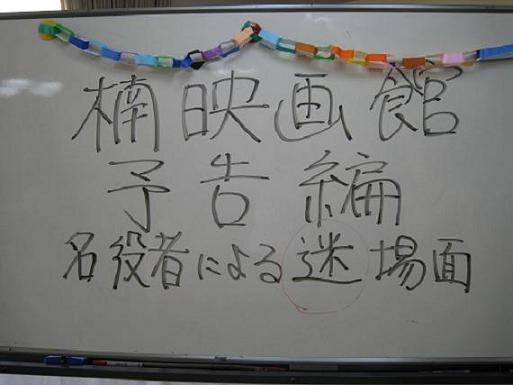 楠映画館
予告編
名役者による迷場面